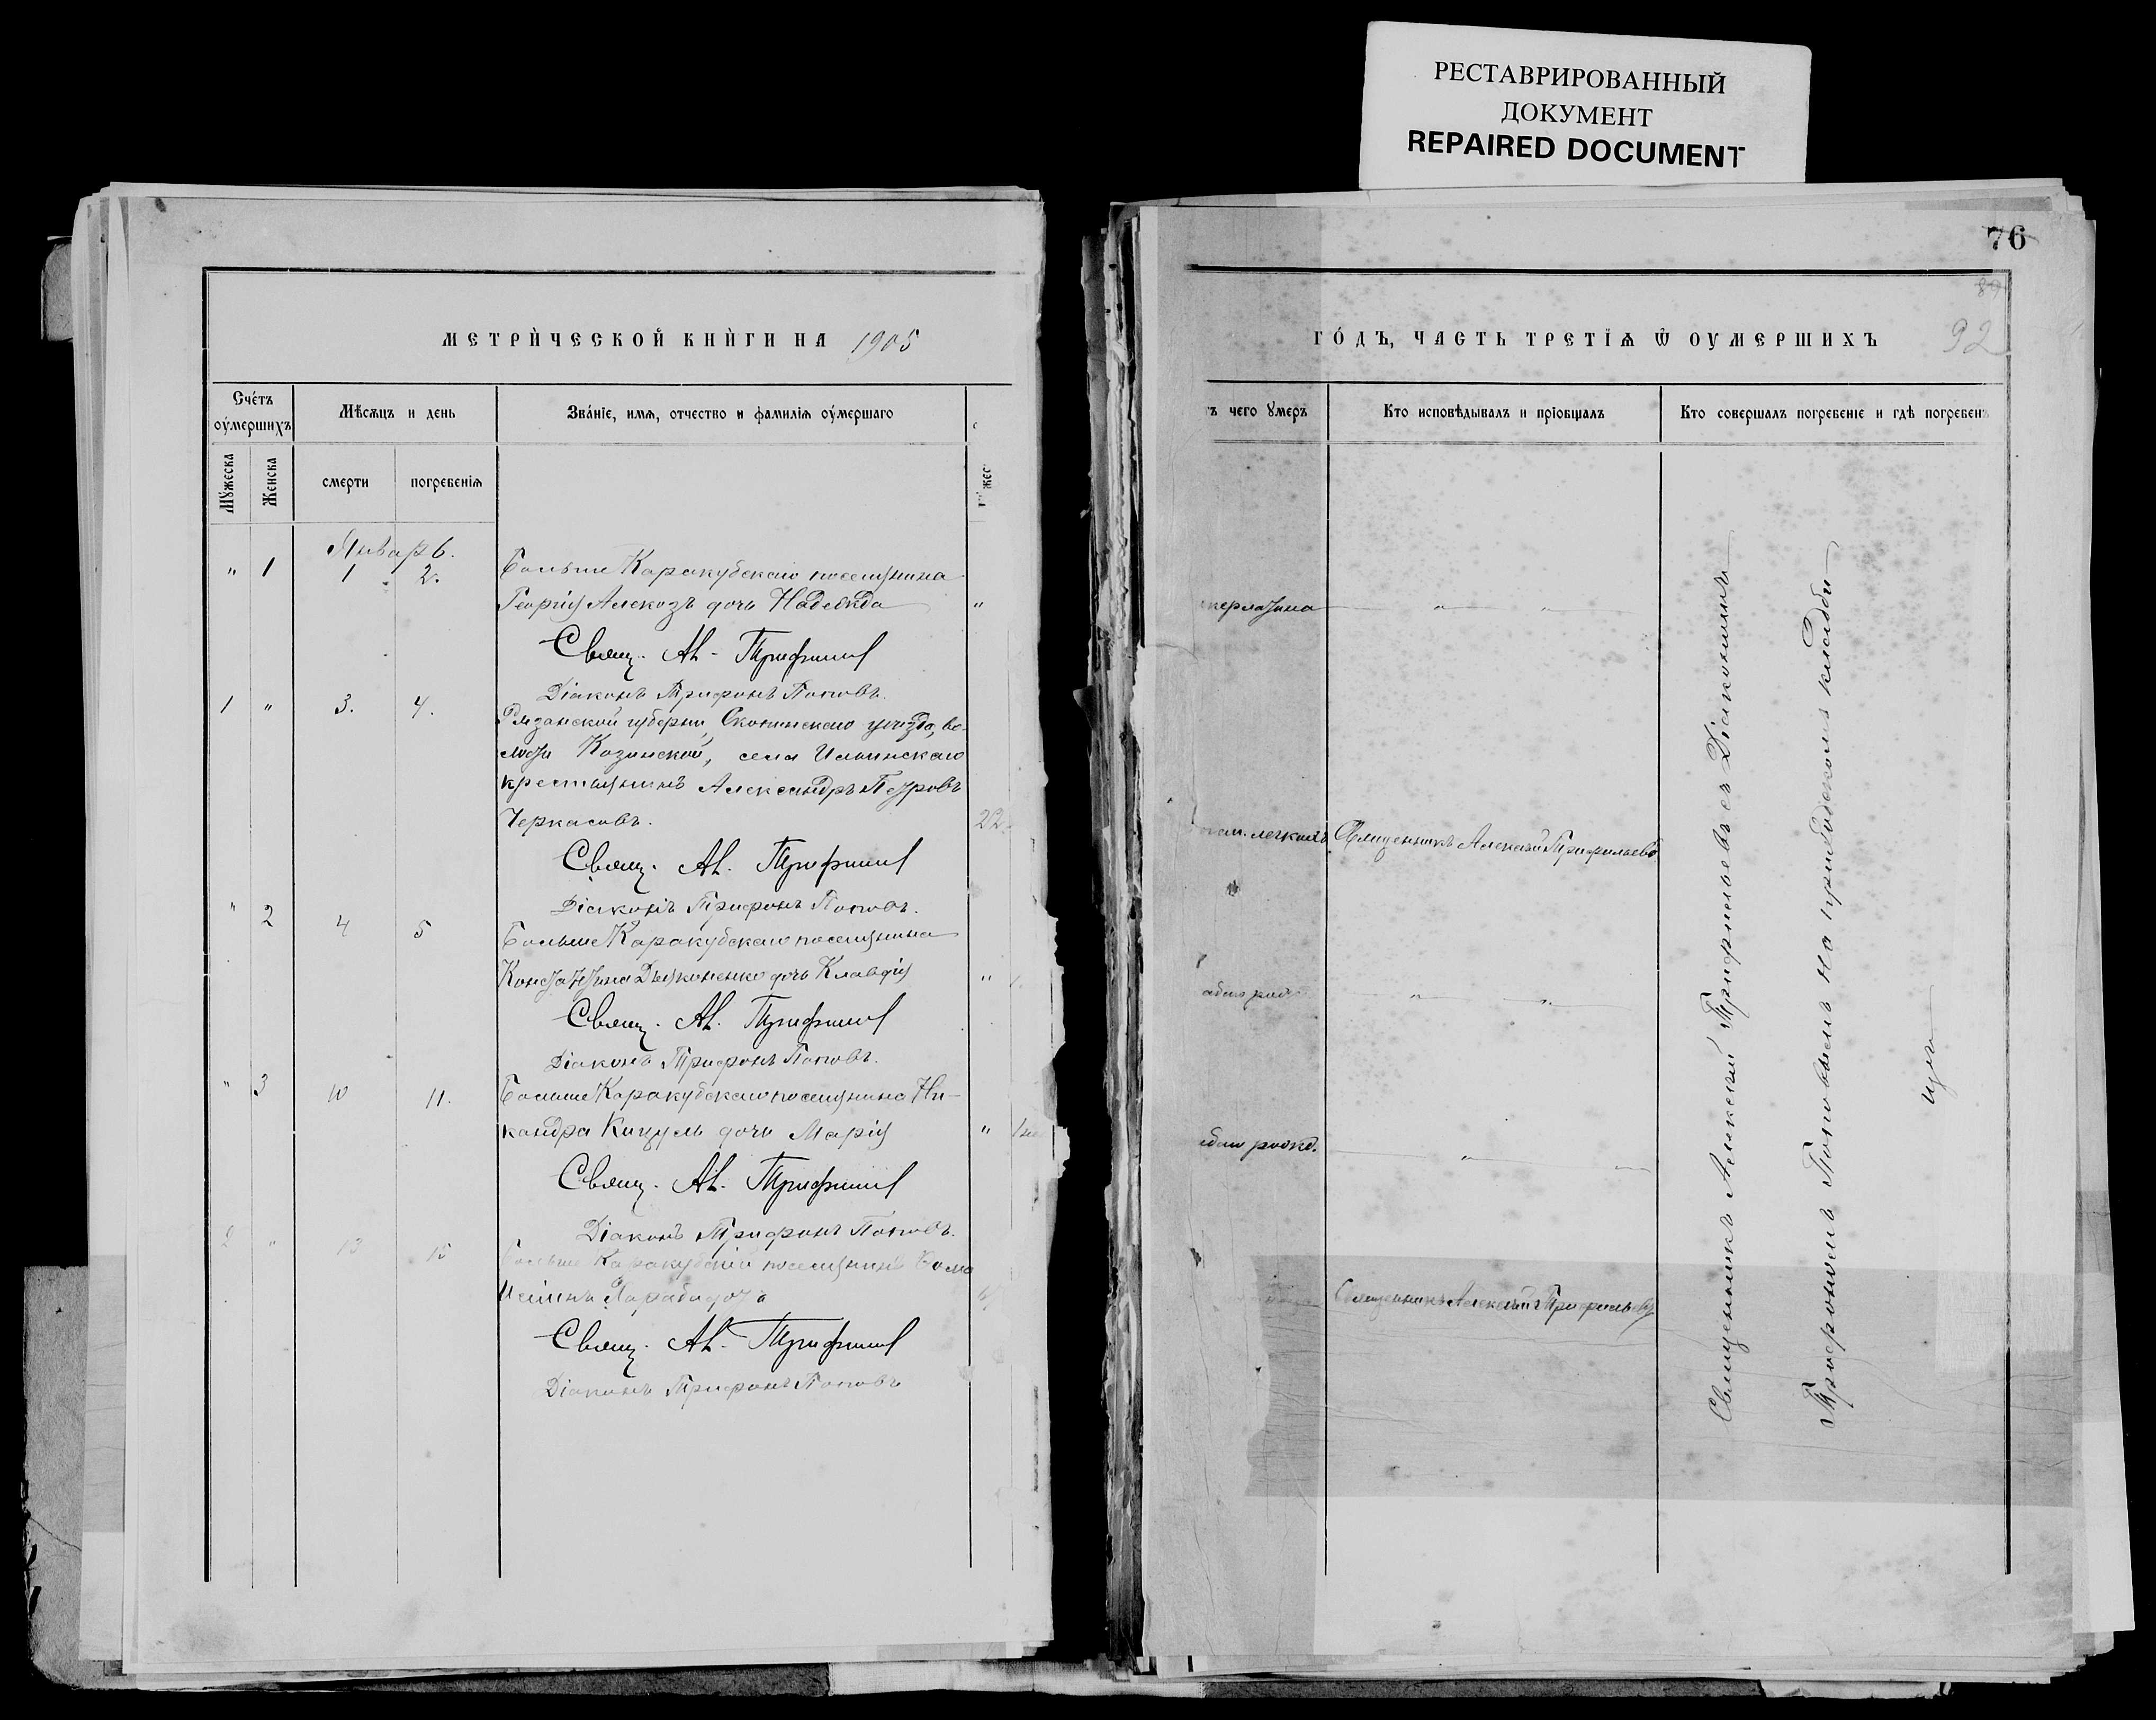 РЕСТАВРИРОВАННЫЙ
ДОКУМЕНТ
REPAIRED DOCUMENT
МЕТРИ́ЧЕСКОЙ КНИ́ГИ НА 1905
Сче́тъ оу́мершихъ
Мѣсѧцъ и день
Зва́нїе, имѧ, отчество и фамилїѧ оу́мершагѡ
Мꙋжеска
Женска
смерти
погребенїѧ
Январь.
" 1 1 2. Больше Каракубскаго поселянина
Георгія Алекозъ дочь Надежда "
Свящ. Ал. Трифильев
Діаконъ Трифонъ Поповъ.
1 " 3. 4. Рязанской губерніи, Скопинскаго уѣзда, во-
лости Казинской, села Ильинскаго
крестьянинъ Александръ Петровъ
Черкасовъ. 22.
Свящ. Ал. Трифильев
Діаконъ Трифонъ Поповъ.
" 2 4 5 Больше Каракубскаго поселянина
Константина Дьяконенко дочь Клавдія "
Свящ. Ал. Трифильев
Діаконъ Трифонъ Поповъ.
" 3 10 11. Больше Каракубскаго поселянина Ни-
кандра Кицуль дочь Марія " 1
Свящ. Ал. Трифильев
Діаконъ Трифонъ Поповъ.
2 " 13 15 Больше Каракубскій поселянинъ Ѳома
Свящ. Ал. Трифильев
Діаконъ Трифонъ Поповъ
76
92
ГО́ДЪ, ЧАСТЬ ТРЕТЇѦ Ѿ ОУМЕРШИХЪ
тъ чего ᲂумеръ
Кто исповѣдывалъ и прїобщалъ
Кто совершалъ погребенїе и гдѣ погребенъ
скерлатина " "
легкихъ Священникъ Алексѣй Трифильевъ
" "
рожд. "
Священникъ Алексѣй Трифильевъ
Священникъ Алексѣй Трифильевъ съ Діакономъ
Трифономъ Поповымъ на приходскомъ кладби-
щѣ